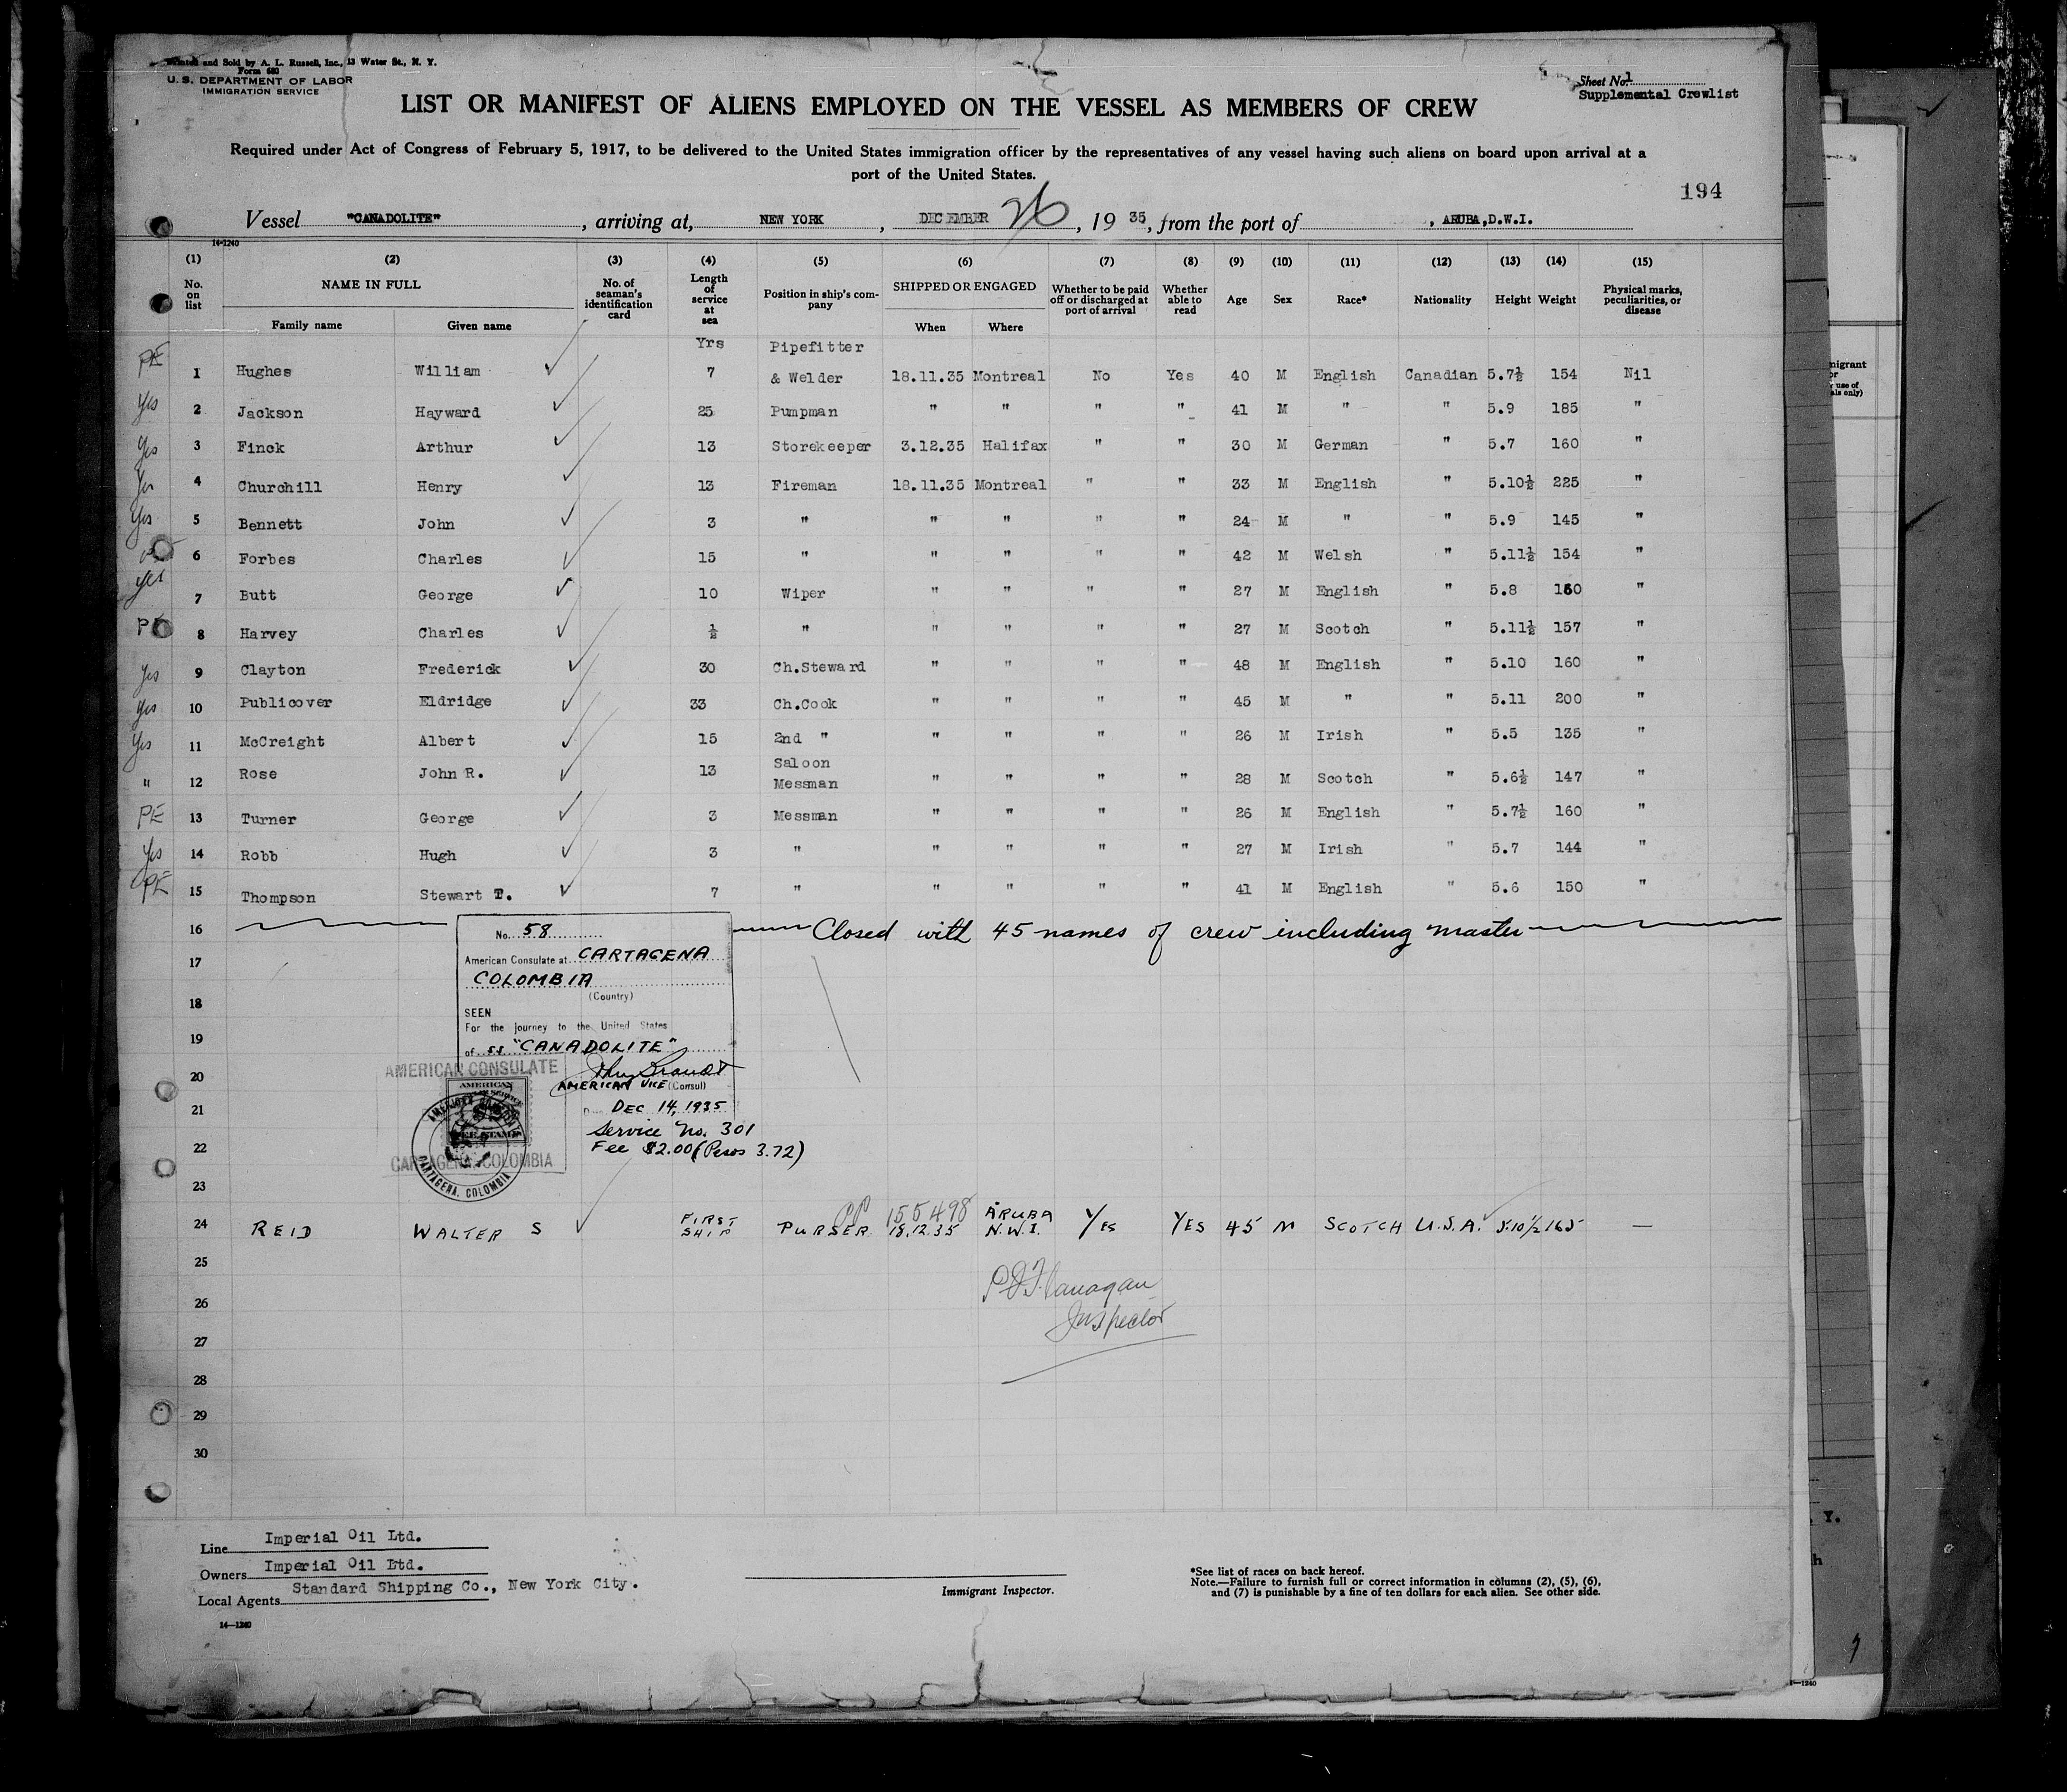 Printed and Sold by A. L. Russell, Inc., 13 Water St., N. Y.
Form 680
U. S. DEPARTMENT OF LABOR
IMMIGRATION SERVICE
Sheet No. 1
Supplemental Crewlist
LIST OR MANIFEST OF ALIENS EMPLOYED ON THE VESSEL AS MEMBERS OF CREW
Required under Act of Congress of February 5, 1917, to be delivered to the United States immigration officer by the representatives of any vessel having such aliens on board upon arrival at a
port of the United States.
194
Vessel "CANADOLITE", arriving at, NEW YORK, DECEMBER 26, 1935, from the port of, ARUBA,D.W.I.
14-1240
(1) (2) (3) (4) (5) (6) (7) (8) (9) (10) (11) (12) (13) (14) (15)
No. on list NAME IN FULL Family name Given name No. of seaman's identification card Length of service at sea Position in ship's company SHIPPED OR ENGAGED When Where Whether to be paid off or discharged at port of arrival Whether able to read Age Sex Race* Nationality Height Weight Physical marks, peculiarities, or disease
Yrs Pipefitter
PE 1 Hughes William 7 & Welder 18.11.35 Montreal No Yes 40 M English Canadian 5.7½ 154 Nil
Yes 2 Jackson Hayward 25 Pumpman " " " " 41 M " " 5.9 185 "
Yes 3 Finck Arthur 13 Storekeeper 3.12.35 Halifax " " 30 M German " 5.7 160 "
Yes 4 Churchill Henry 13 Fireman 18.11.35 Montreal " " 33 M English " 5.10½ 225 "
Yes 5 Bennett John 3 " " " " " 24 M " " 5.9 145 "
6 Forbes Charles 15 " " " " " 42 M Welsh " 5.11½ 154 "
Yes 7 Butt George 10 Wiper " " " " 27 M English " 5.8 160 "
PE 8 Harvey Charles ½ " " " " " 27 M Scotch " 5.11½ 157 "
Yes 9 Clayton Frederick 30 Ch.Steward " " " " 48 M English " 5.10 160 "
Yes 10 Publicover Eldridge 33 Ch.Cook " " " " 45 M " " 5.11 200 "
Yes 11 McCreight Albert 15 2nd " " " " " 26 M Irish " 5.5 135 "
" 12 Rose John R. 13 Saloon Messman " " " " 28 M Scotch " 5.6½ 147 "
PE 13 Turner George 3 Messman " " " " 26 M English " 5.7½ 160 "
Yes 14 Robb Hugh 3 " " " " " 27 M Irish " 5.7 144 "
PE 15 Thompson Stewart T. 7 " " " " " 41 M English " 5.6 150 "
16 Closed with 45 names of crew including master
No. 58
American Consulate at CARTAGENA
17
COLOMBIA
(Country)
18
SEEN
For the journey to the United States
19
of SS "CANADOLITE"
AMERICAN CONSULATE
20
AMERICAN VICE (Consul)
21
DEC 14, 1935
Service No. 301
22
Fee $2.00 (Pesos 3.72)
CARTAGENA, COLOMBIA
CARTAGENA, COLOMBIA
23
155498
24 REID WALTER S FIRST SHIP PURSER 18.12.35 ARUBA N.W.I. Yes YES 45 M SCOTCH U.S.A. 5.10½ 165 —
25
P D Flanagan
26
Inspector
27
28
29
30
Line Imperial Oil Ltd.
Owners Imperial Oil Ltd.
Local Agents Standard Shipping Co., New York City.
Immigrant Inspector.
*See list of races on back hereof.
Note.—Failure to furnish full or correct information in columns (2), (5), (6),
and (7) is punishable by a fine of ten dollars for each alien. See other side.
14—1240